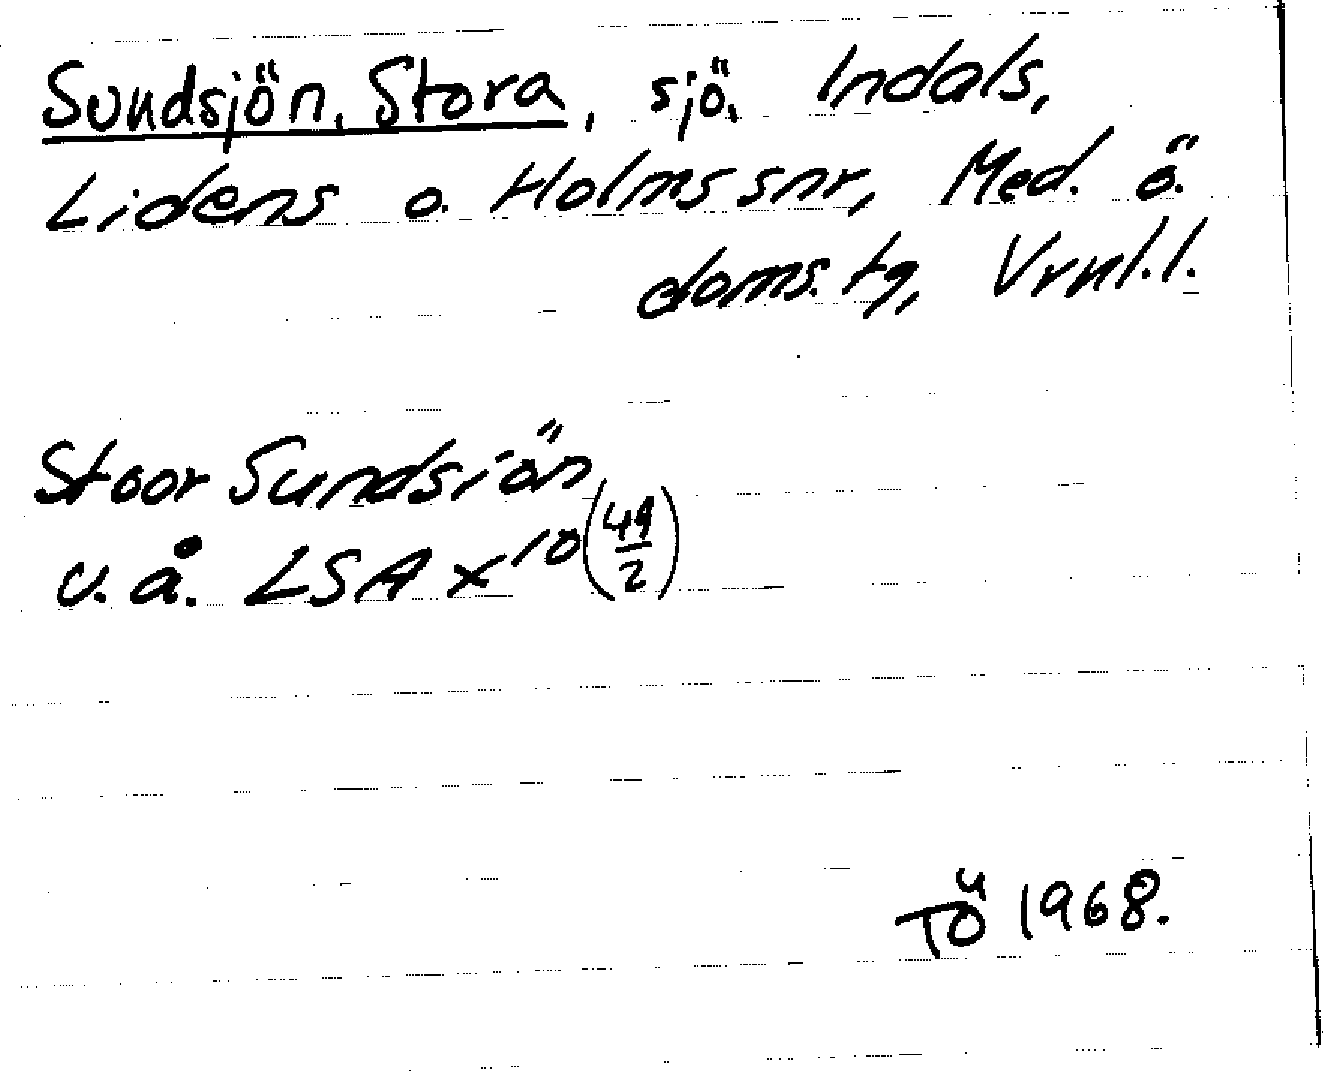 Sundsjön, Stora, sjö, Indals,
Lidens o. Holms snr, Med. ö.
doms. tg, Vrnl.l.
Stoor Sundsiön
u.å. LSA x¹⁰(49/2)
TÖ 1968.